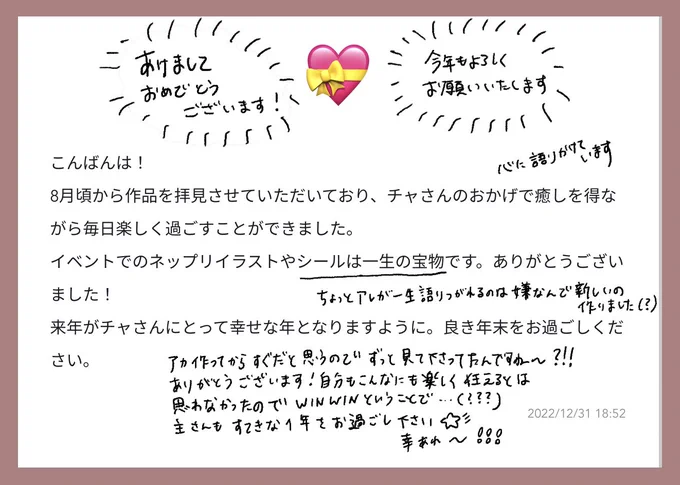 あけまして
おめでとう
ございます！
今年もよろしく
お願いいたします
こんばんは！
心に語りかけて
います
8月頃から作品を拝見させていただいており、チャさんのおかげで癒しを得な
がら毎日楽しく過ごすことができました。
イベントでのネップリイラストやシールは一生の宝物です。ありがとうござい
ました！
ちょっとアレが一生語りつがれるのは嫌なんで新しいの
作りました(?)
来年がチャさんにとって幸せな年となりますように。良き年末をお過ごしくだ
さい。
アカ作ってからすぐだと思うのでずっと見て下さってたんですねー〜?!!
ありがとうございます！自分もこんなにも楽しく狂えるとは
思わなかったのでWINWINということで…(???)
主さんもすてきな1年をお過ごし下さい☆彡
幸あれ〜!!!
2022/12/31 18:52